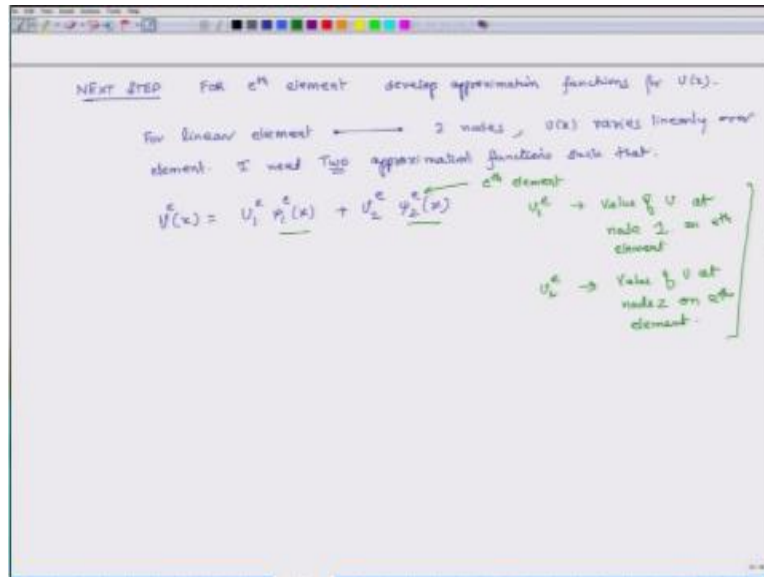 NEXT STEP FOR eth element develop approximation functions for U(x).
For linear element 2 nodes, U(x) varies linearly over
element. I need TWO approximation functions such that.
eth element
U^e(x) = U₁^e φ₁^e(x) + U₂^e φ₂^e(x)
U₁^e → Value of U at
node 1 on eth
element
U₂^e → Value of U at
node 2 on eth
element.